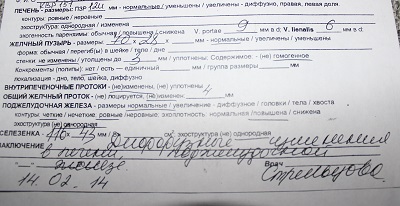 КВР 151
ПЕЧЕНЬ - размеры: ПЗР 124 мм - нормальные / уменьшены / увеличены - диффузно, правая, левая доли.
контуры: ровные / неровные
эхоструктура: однородная / изменена
эхогенность паренхимы обычная / повышена / снижена V. portae 9 мм в d: V. lienalis 6 мм в d.
ЖЕЛЧНЫЙ ПУЗЫРЬ - размеры: 70 × 28 мм - нормальные / увеличены / уменьшены
форма: обычная / перегиб(ы) в шейке / тело / дне
стенки: не изменены / утолщены до 3 мм / уплотнены: Содержимое: не / гомогенное
Конкременты (полипы): нет / есть — единичный мм / группа размеры мм
в шейке, дно, тело, диффузно
ВНУТРИПЕЧЕНОЧНЫЕ ПРОТОКИ - (не)изменены, / уплотнены 4
ОБЩИЙ ЖЕЛЧНЫЙ ПРОТОК - не лоцирован, (не) изменен мм
ПОДЖЕЛУДОЧНАЯ ЖЕЛЕЗА - размеры нормальные / увеличена - диффузно / головки / тела / хвоста
контуры: четкие / нечеткие, ровные / неровные; эхоплотность нормальная / повышена / снижена
эхоструктура (не) однородная
СЕЛЕЗЕНКА - 110-45 мм / эхоструктура (не) однородная
ЗАКЛЮЧЕНИЕ Диффузные изменения
в печени, поджелудочной
железе Врач
14. 02. 14